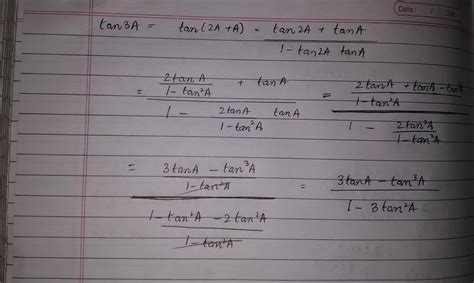 Date: / /
tan3A = tan(2A+A) = (tan2A + tanA)/(1 - tan2A tanA)
= ((2tanA)/(1-tan²A) + tanA)/(1 - (2tanA)/(1-tan²A) tanA) = ((2tanA + tanA - tan³A)/(1-tan²A))/(1 - (2tan²A)/(1-tan²A))
= ((3tanA - tan³A)/(1-tan²A))/((1-tan²A-2tan²A)/(1-tan²A)) = (3tanA - tan³A)/(1-3tan²A)